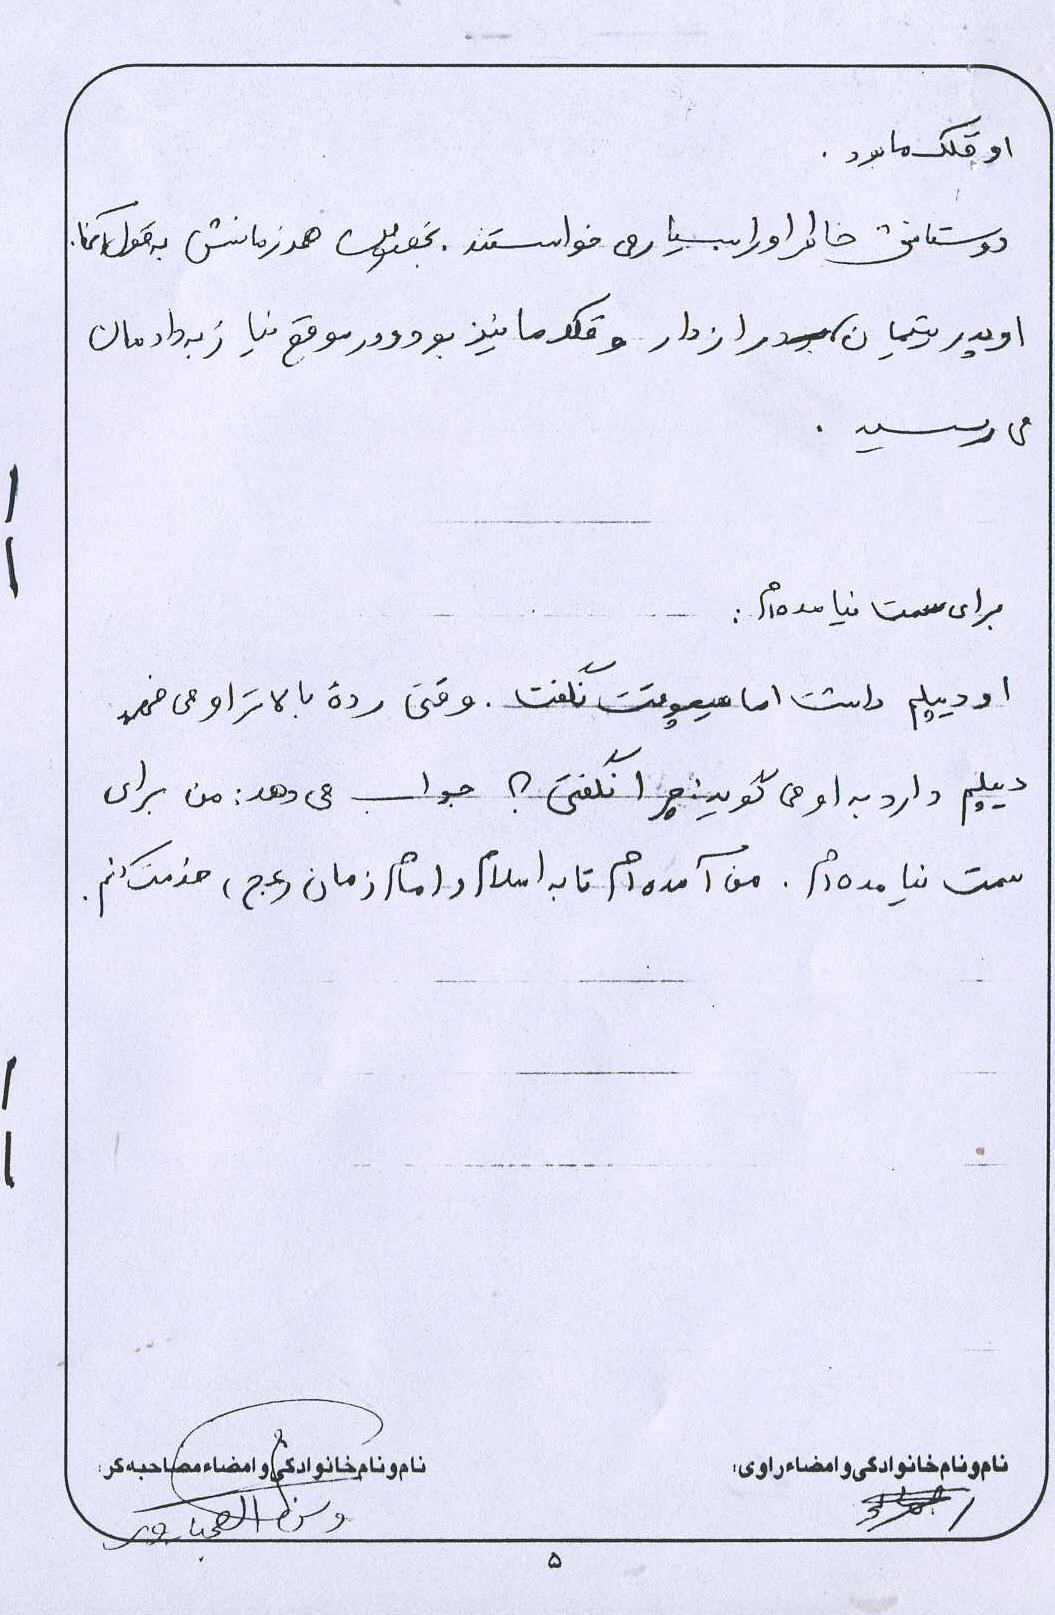 او قلک ما بود .
دوستانش خاطر او را بسیار می خواستند . بخصوص همرزمانش به قول آنها .
او پدر یتیمان، راز دار و قلک ما نیز بود و در موقع نیاز به داد مان
می رسید .
برای سمت نیامده ام :
او دیپلم داشت اما هیچوقت نگفت . وقتی ردهٔ بالاتر او می فهمد
دیپلم دارد به او می گوید: چرا نگفتی ؟ جواب می دهد: من برای
سمت نیامده ام . من آمده ام تا به اسلام و امام زمان (عج) خدمت کنم .
نام و نام خانوادگی و امضاء راوی:
نام و نام خانوادگی و امضاء مصاحبه گر:
۵